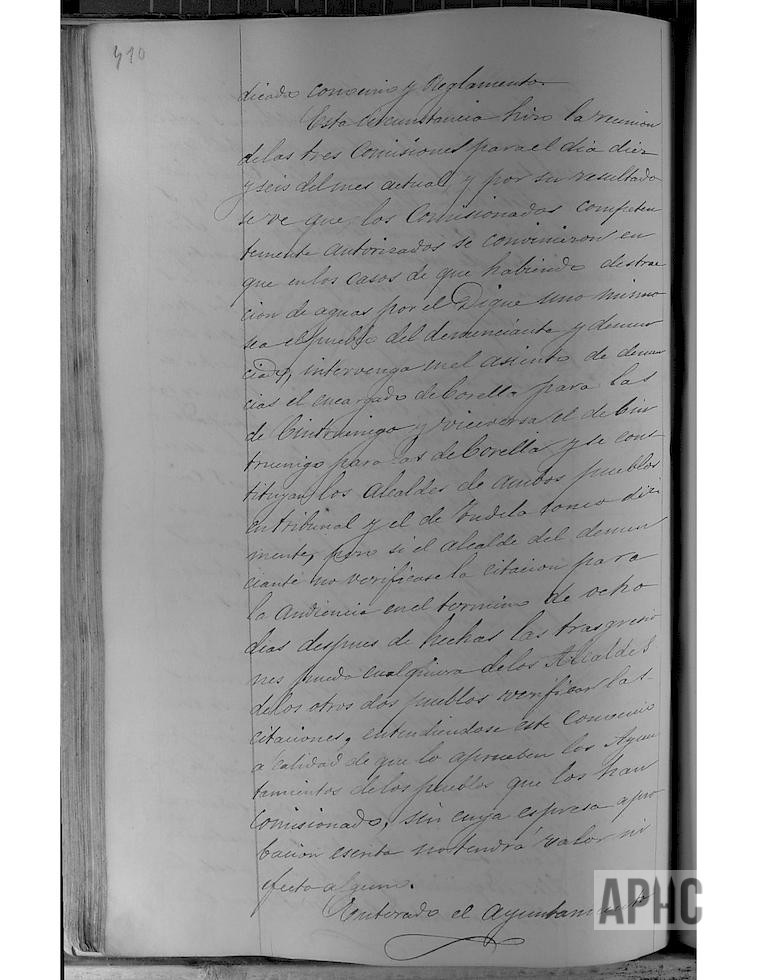 410
dicado convenio y Reglamento.
Esta circunstancia hizo la reunion
de las tres Comisiones para el dia diez
y seis del mes actual, y por su resultado
se ve que los Comisionados competen
temente autorizados se convinieron en
que en los casos de que habiendo distrac
cion de aguas por el Dique uno mismo
sea el pueblo del denunciante y denun
ciado, intervenga en el asiento de denun
cias el encargado de Corella para las
de Cintruenigo y viceversa el de Cin
truenigo para las de Corella y se cons-
tituyan los Alcaldes de ambos pueblos
en tribunal y el de Tudela como diri
mente, pero si el alcalde del denun
ciante no verificase la citacion para
la audiencia en el termino de ocho
dias despues de hechas las trasgresio
nes pueda cualquiera de los Alcaldes
de los otros dos pueblos verificar las-
citaciones, entendiendose este Convenio
a calidad de que lo aprueben los Ayun
tamientos de los pueblos que los han
comisionado, sin cuya espresa apro
bacion escrita no tendrá valor ni
efecto alguno.
Enterado el Ayuntamiento
APHC